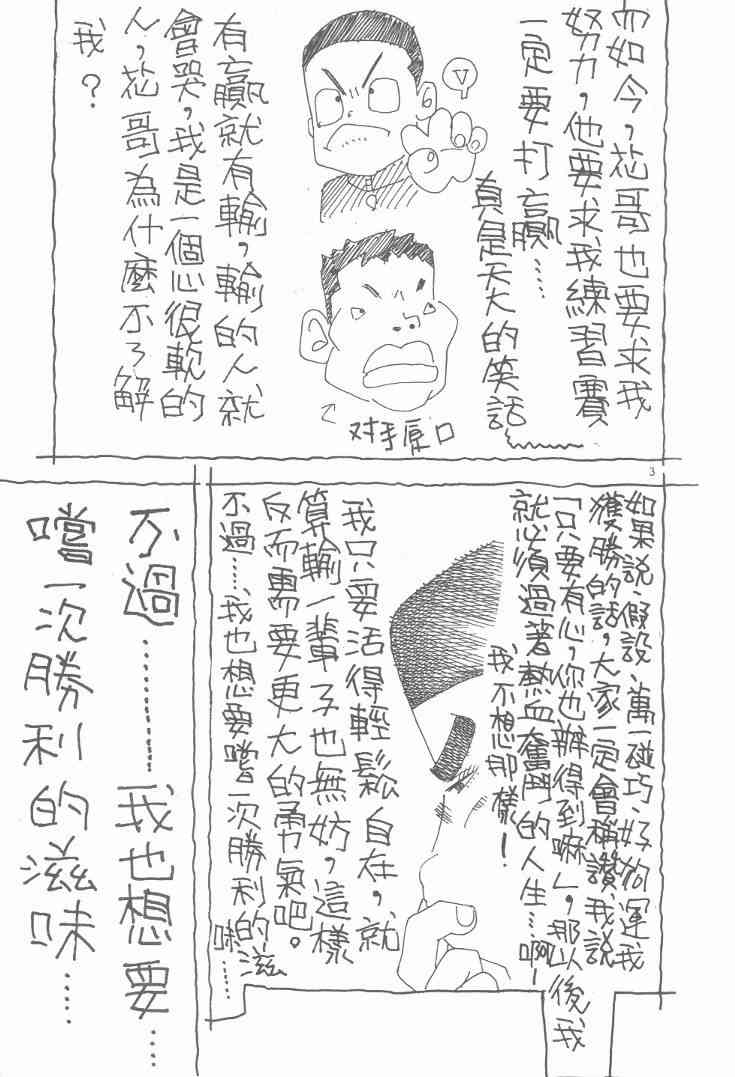 而如今，尨哥也要求我
努力，他要求我練習賽
一定要打贏……
真是天大的笑話
对手原口
有贏就有輸，輸的人就
會哭，我是一個心很軟的
人，尨哥為什麼不了解
我？
3
如果說、假設、萬一碰巧、好狗運我
獲勝的話，大家一定會稱讚我說
「只要有心，你也辦得到嘛」，那以後我
就必須過著熱血奮鬥的人生…啊！
我不想那樣！
我只要活得輕鬆自在，就
算輸一輩子也無妨，這樣
反而需要更大的勇氣吧。
不過……我也想要嚐一次勝利的滋
味……
不過…………我也想要……
嚐一次勝利的滋味……